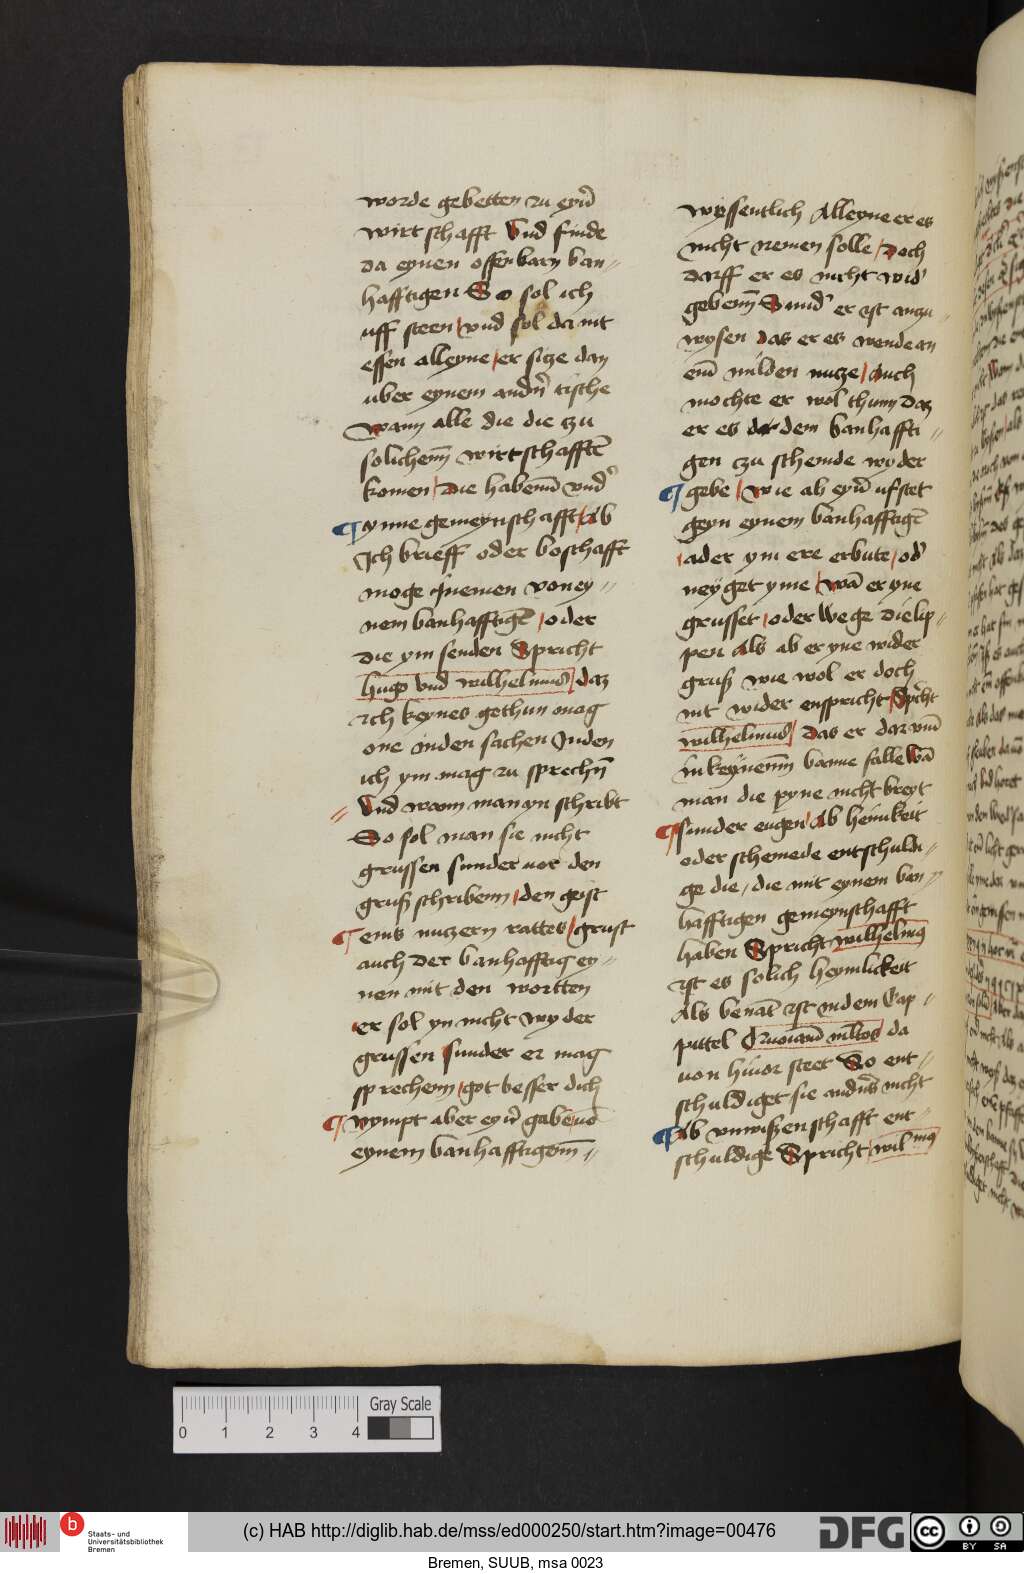 worde gebetten zu eyn̄
wirtschafft Vnd finde
da eynen offenbarn ban-
hafftigen So sol ich
uff steen vnd sol da nit
essen alleyne er sitze dan
uber eynem andn̄ tische
Wann alle die die zu
solichenn̄ wirtschafftē
komen die habenn̄ vnd̄
¶ yme gemeynschafft Ab
Ich brieff oder boschafft
moge nemen von ey-
nem banhafftigē oder
die ym senden Spricht
hugo vnd wilhelmus daz
ich keynes gethun mag
one inden sachen Inden
ich ym mag zu sprechn̄
Vnd wann man yn schribt
So sol man sie nicht
grussen sunder vor den
gruß schribenn den geist
¶ eins nutzern rattes grust
auch der banhafftig ey-
nen mit den wortten
er sol yn nicht wyder
grussen sunder er mag
sprechenn got besser dich
¶ Nympt aber eyn̄ gabe uō
eynem banhafftigenn̄
wyssentlich Alleyne er es
nicht nemen solle doch
darff er es nicht wid̄
gebenn̄ Sund̄ er ist anzu-
wysen das er es wende an
ein̄ milden nutze Auch
mochte er wol thunn daz
er es dem banhaffti-
gen zu schemde wyder
¶ gebe Wie ab eyn̄ ufstet
geyn eynem banhafftigē
ader ym ere erbute od̄
neyget yme wā er yne
grusset oder Wege die lip-
pen Als ab er yne wider
gruß wie wol er doch
nit wider enspricht Spr̄cht
wilhelmus Das er darumb̄
in keynenn̄ banne falle Wā
man die pyne nicht breyt
¶ sunder eugen Ab heimkeit
oder schemede entschuldi-
ge die die mit eynem ban-
hafftigen gemeynschafft
haben Spricht wilhelmꝰ
ist es solich heymlickeit
Als benāt ist in dem Cap-
pittel Quoniam multos da
von hiuor steet So ent-
schuldiget sie anders nicht
¶ Ab vnwißenschafft ent-
schuldige Spricht wilmꝰ
0 1 2 3 4
Gray Scale
b
Staats- und
Universitätsbibliothek
Bremen
(c) HAB http://diglib.hab.de/mss/ed000250/start.htm?image=00476
DFG
cc
BY SA
Bremen, SUUB, msa 0023